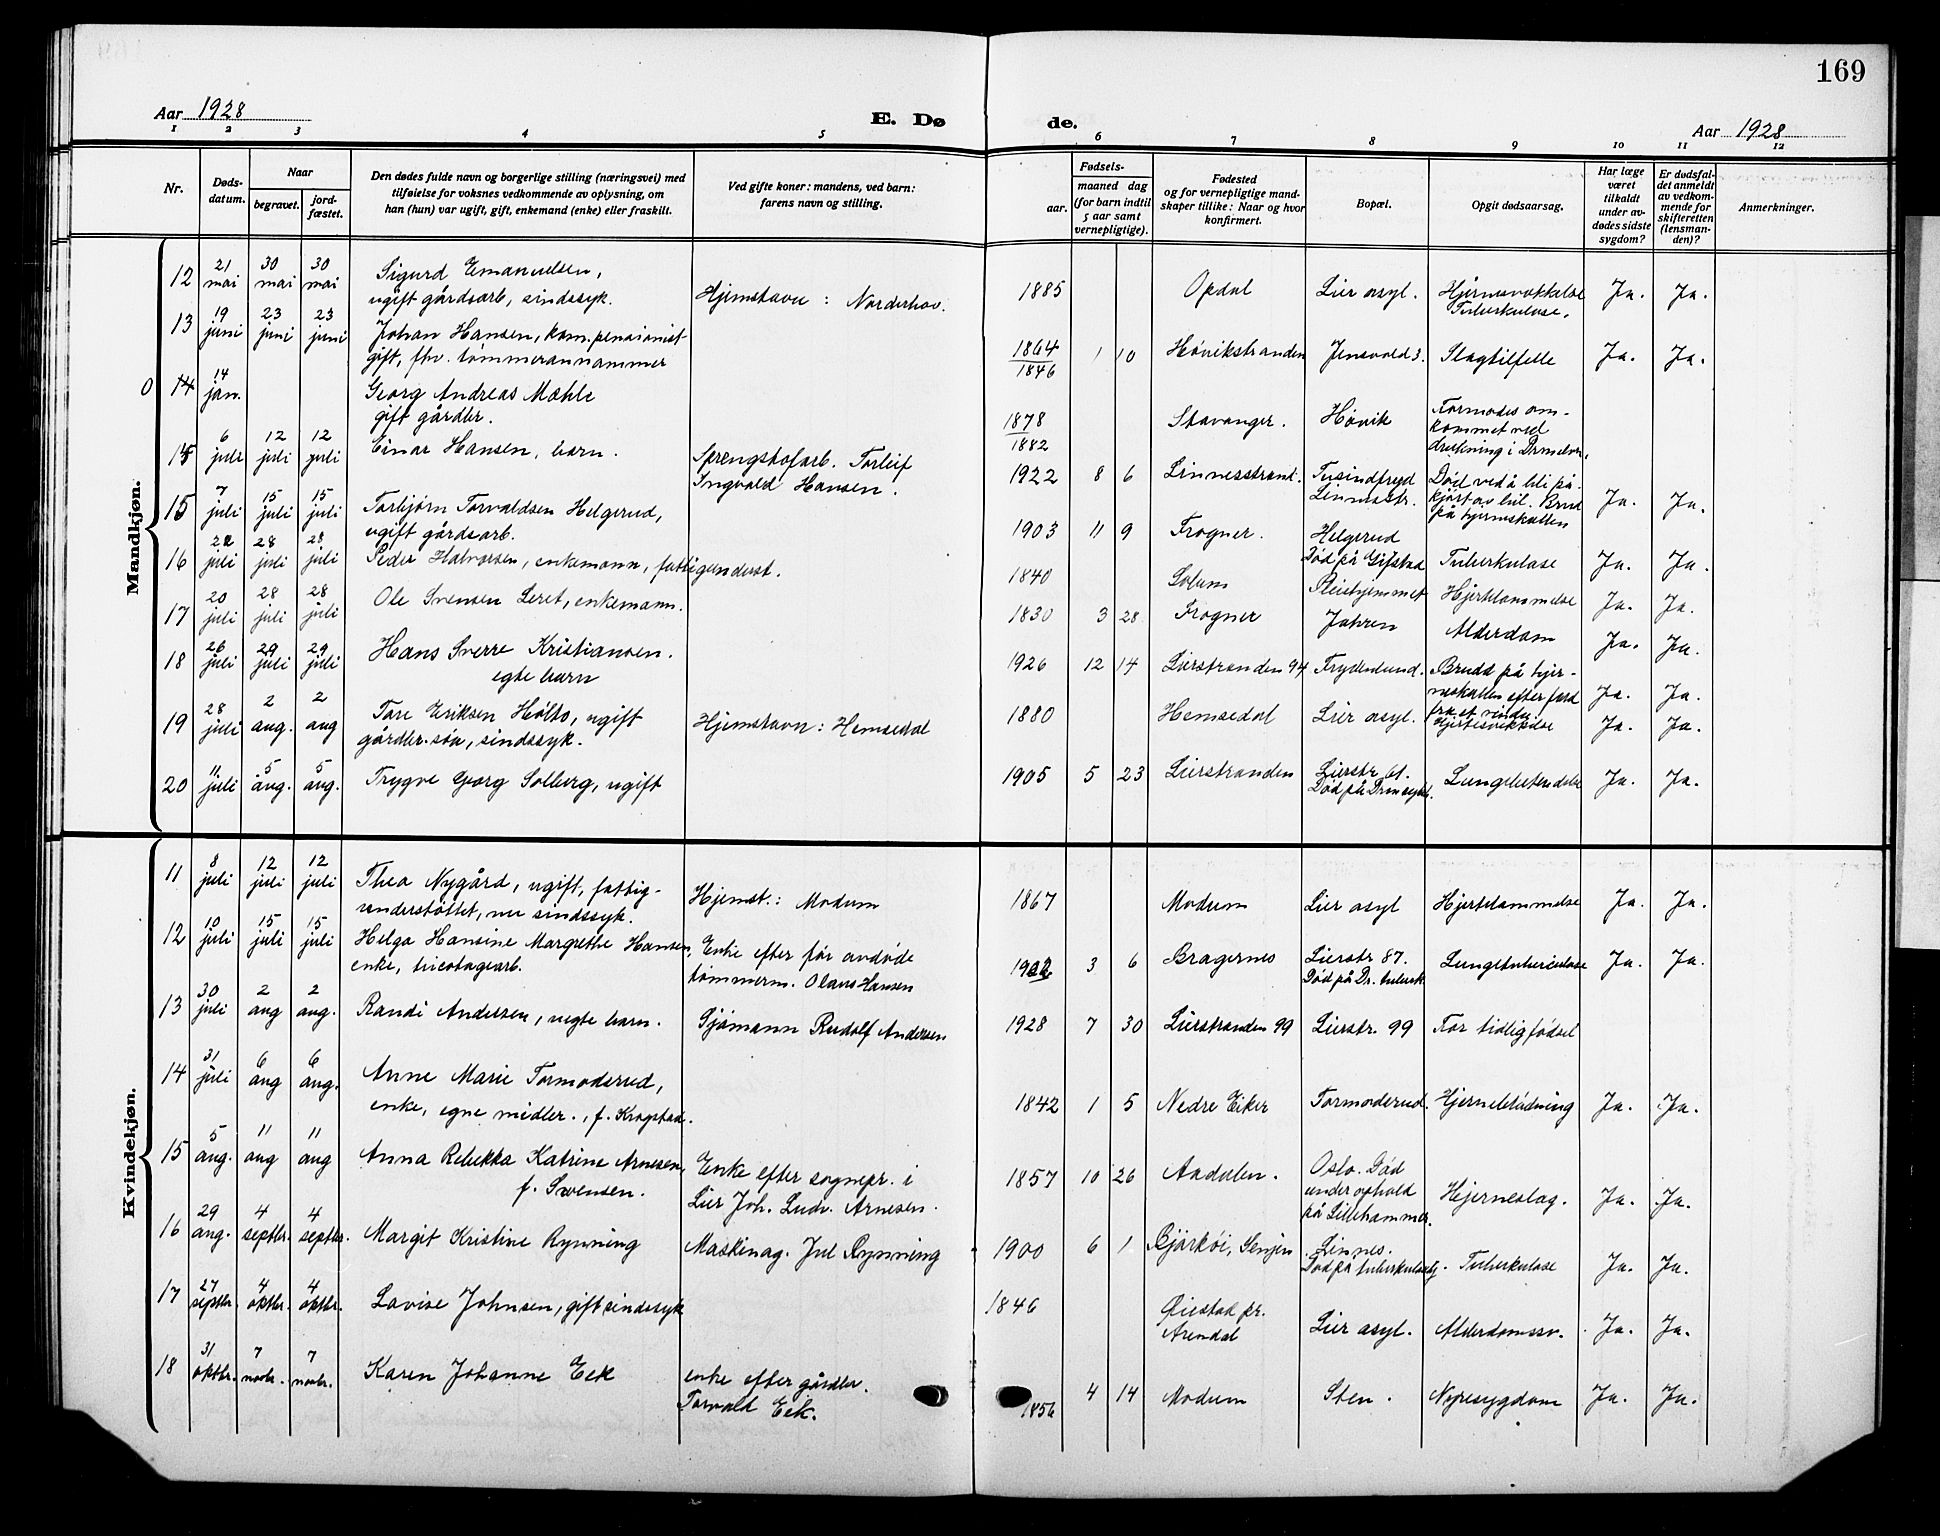 169
Aar 1928
E. Døde.
Aar 1928
1 2 3 4 5 6 7 8 9 10 11 12
Nr.
Døds-
datum.
Naar
begravet.
jord-
fæstet.
Den dødes fulde navn og borgerlige stilling (næringsvei) med
tilføielse for voksnes vedkommende av oplysning, om
han (hun) var ugift, gift, enkemand (enke) eller fraskilt.
Ved gifte koner: mandens, ved barn:
farens navn og stilling.
Fødsels-
aar.
maaned dag
(for barn indtil
5 aar samt
vernepligtige).
Fødested
og for vernepligtige mand-
skaper tillike: Naar og hvor
konfirmert.
Bopæl.
Opgit dødsaarsag.
Har læge
været
tilkaldt
under av-
dødes sidste
sygdom?
Er dødsfal-
det anmeldt
av vedkom-
mende for
skifteretten
(lensman-
den)?
Anmerkninger.
Mandkjøn.
12 21 mai 30 mai 30 mai Sigurd Emanuelsen,
ugift gårdsarb, sindssyk. Hjemstavn: Norderhov. 1885 Opdal Lier asyl. Hjernesvekkelse
Tuberkulose. Ja. Ja.
13 19 juni 23 juni 23 juni Johan Hansen, kom. pensionist
gift, fhv. tømmerannammer 1864
1846 1 10 Høvikstranden Jensvold 3. Slagtilfelle Ja. Ja.
0 14 14 jan. Georg Andreas Mæhle
gift gårdbr. 1878
1882 Stavanger. Høvik Formodes om-
kommet ved
drukning i Drmselven.
15 6 juli 12 juli 12 juli Einar Hansen, barn. Sprengstofarb. Torleif
Ingvald Hansen. 1922 8 6 Linnesstrand. Tusindfryd
Linnesstr. Død ved å bli på-
kjørt av bil. Brud
på hjerneskallen Ja. Ja.
15 7 juli 15 juli 15 juli Torbjørn Torvaldsen Helgerud,
ugift gårdsarb. 1903 11 9 Frogner. Helgerud
Død på Gifstad Tuberkulose Ja. Ja.
16 22 juli 28 juli 28 juli Peder Halvorsen, enkemann, fattigunderst. 1840 Solum Pleiehjemmet Hjertelammelse Ja. Ja.
17 20 juli 28 juli 28 juli Ole Svensen Leret, enkemann. 1830 3 28 Frogner Jahren Alderdom Ja. Ja.
18 26 juli 29 juli 29 juli Hans Sverre Kristiansen.
egte barn 1926 12 14 Lierstranden 94 Frydenlund. Brudd på hjer-
neskallen efter fald
fra et vindu. Ja. Ja.
19 28 juli 2 aug. 2 aug Tore Eriksen Holto, ugift
gårdbr.søn, sindssyk. Hjemstavn: Hemsedal 1880 Hemsedal Lier asyl. Hjertesvekkelse Ja. Ja.
20 11 juli 5 aug. 5 aug. Trygve Georg Solberg, ugift 1905 5 23 Lierstranden Lierstr. 61.
Død på Drm sykh. Lungebetendelse Ja. Ja.
Kvindekjøn.
11 8 juli 12 juli 12 juli Thea Nygård, ugift, fattig-
understøttet, var sindssyk. Hjemst.: Modum 1867 Modum Lier asyl Hjertelammelse Ja. Ja.
12 10 juli 15 juli 15 juli Helga Hansine Margrethe Hansen,
enke, tricotagearb. Enke efter før avdøde
tømmerm. Olaus Hansen 1902 3 6 Bragernes Lierstr 87.
Død på Dr. tuberk. Lungetuberkulose Ja. Ja.
13 30 juli 2 aug 2 aug. Randi Andersen, uegte barn. Sjømann Rudolf Andersen 1928 7 30 Lierstranden 99 Lierstr. 99 For tidlig fødsel
14 31 juli 6 aug 6 aug. Anne Marie Tormoderud,
enke, egne midler., f. Krogstad. 1842 1 5 Nedre Eiker Tormoderud. Hjerneblødning Ja. Ja.
15 5 aug. 11 aug 11 aug Anna Rebekka Katrine Arnesen,
f. Svensen. Enke efter sognepr. i
Lier Joh. Ludv. Arnesen. 1857 10 26 Aadalen. Oslo. Død
under ophold
på Lillehammer. Hjerneslag. Ja. Ja.
16 29 aug. 4 septbr. 4 septbr. Margit Kristine Rynning Maskinag. Jul Rynning 1900 6 1 Bjarkøi, Senjen Linnes.
Død på tuberkulosehj. Tuberkulose Ja. Ja.
17 27 septbr. 4 oktbr. 4 oktbr. Lovise Johnsen, gift sindssyk 1846 Øiestad pr.
Arendal Lier asyl. Alderdomssv. Ja. Ja.
18 31 oktbr. 7 novbr. 7 novbr. Karen Johanne Eek enke efter gårdbr.
Torvald Eek. 1856 4 14 Modum Sten. Nyresygdom Ja. Ja.